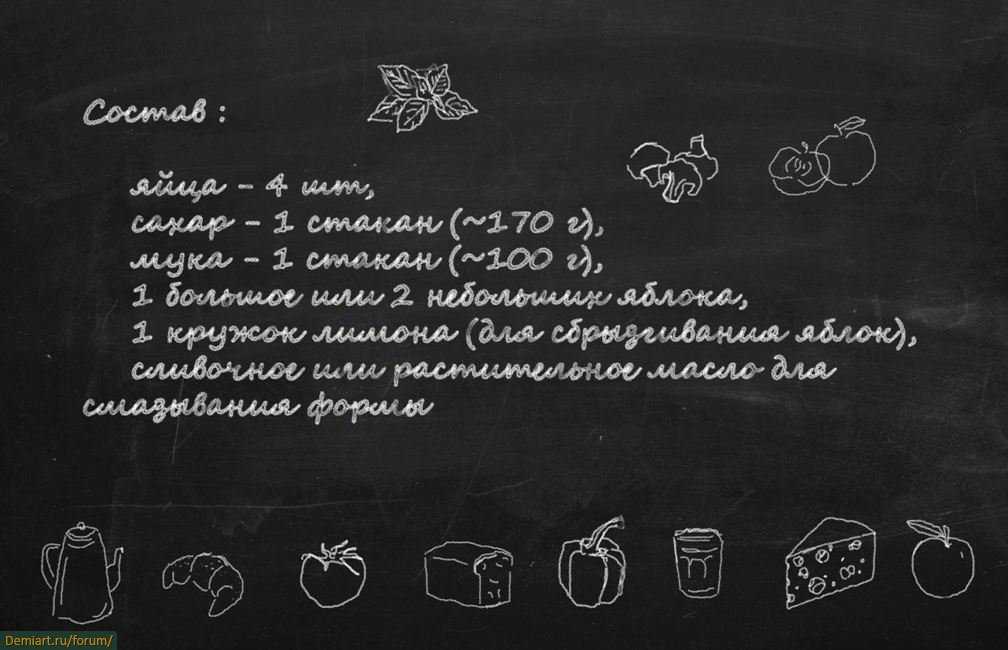 Состав :
яйца - 4 шт,
сахар - 1 стакан (~170 г),
мука - 1 стакан (~100 г),
1 большое или 2 небольших яблока,
1 кружок лимона (для сбрызгивания яблок),
сливочное или растительное масло для
смазывания формы
Demiart.ru/forum/